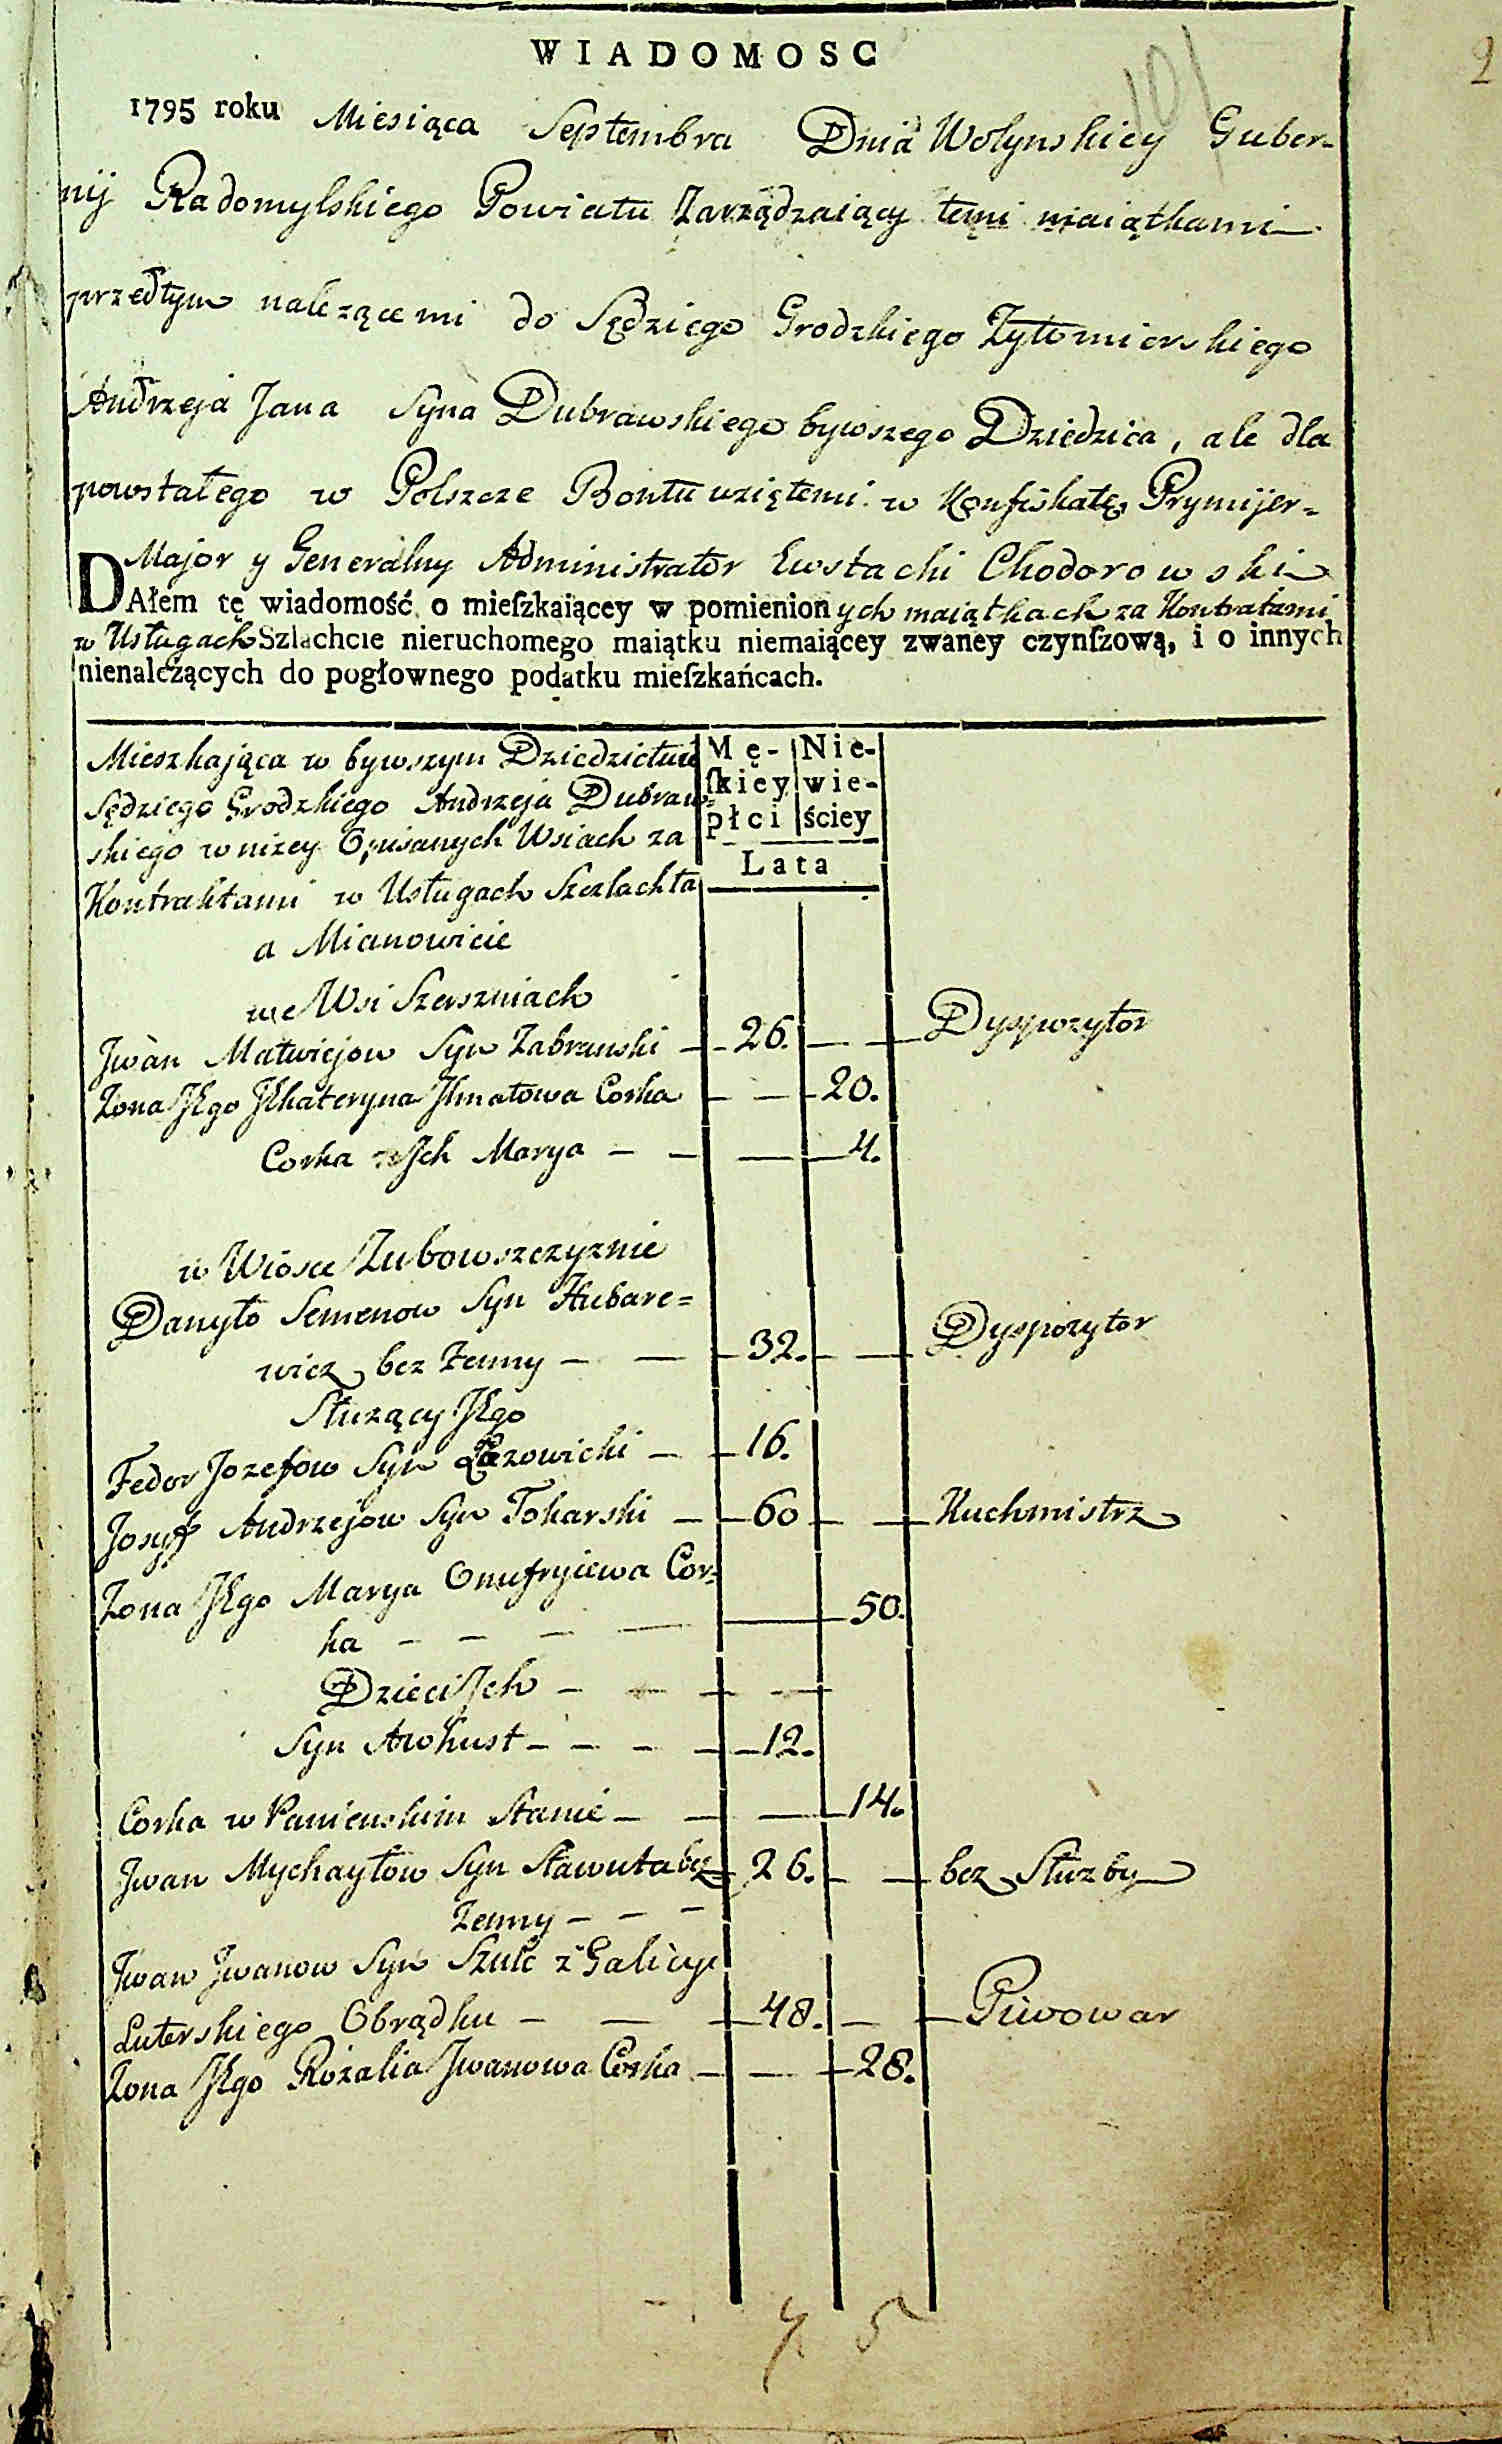 2
101
WIADOMOSC
1795 roku Miesiąca Septembra Dnia Wołynskiey Guber-
nij Radomylskiego Powiatu Zarządzaiący temi maiątkami
przedtym nalezącemi do Sędziego Grodzkiego Zytomierskiego
Andrzeja Jana Syna Dubrawskiego bywszego Dziedzica, ale dla
powstałego w Polszcze Bontu wziętemi w Konfiskatę Prymijer-
Major y Generalny Administrator Ewstachi Chodorowski
DAłem tę wiadomość o mieſzkaiącey w pomienionych maiątkach za Kontraktami
w Usługach Szlachcie nieruchomego maiątku niemaiącey zwaney czynſzową, i o innych
nienalczących do pogłownego podatku mieſzkańcach.
Mieszkająca w bywszym Dziedzictwie
Sędziego Grodzkiego Andrzeja Dubraw-
skiego w niżey Opisanych Wsiach za
Kontraktami w Usługach Szczlachta
a Mianowicie
Mę- Nie-
ſkiey wie-
płci ściey
Lata
we Wsi Szerszniach
Jwan Matwiejow Syn Zabranski — 26. — Dyspozytor
Zona Jego Jekateryna Jhnatowa Corka — 20.
Corka w Jch Marya — — 4.
w Wiosce Zubowszczyznie
Danyło Semenow Syn Hubare=
wicz bez Zenny — — 32. — Dyspozytor
Służący Jego
Fedor Jozefow Syn Łazowicki — 16.
Josyf Andrzejow Syn Tokarski — 60 — Kuchmistrz
Zona Jego Marya Onufryiewa Cor-
ka — — — — 50.
Dzieci Jch — — — —
Syn Awhust — — — 12.
Corka w Panienskim Stanie — — 14.
Jwan Mychayłow Syn Sławuta bez 26. — bez Służby
Zenny — — —
Jwan Jwanow Syn Szulc z Galicyi
Luterskiego Obrządku — — 48. — Piwowar
Zona Jego Rozalia Jwanowa Corka — — 28.
7. 5